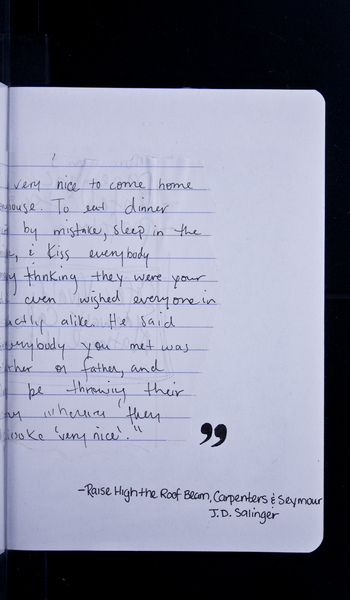 very nice to come home
house. To eat dinner
by mistake, sleep in the
, & kiss everybody
thnking they were your
even wished everyone in
actly alike. He said
erybody you met was
ther or father, and
be throwing their
wherever they
ooke 'very nice'."
”
-Raise High the Roof Beam, Carpenters & Seymour
J.D. Salinger